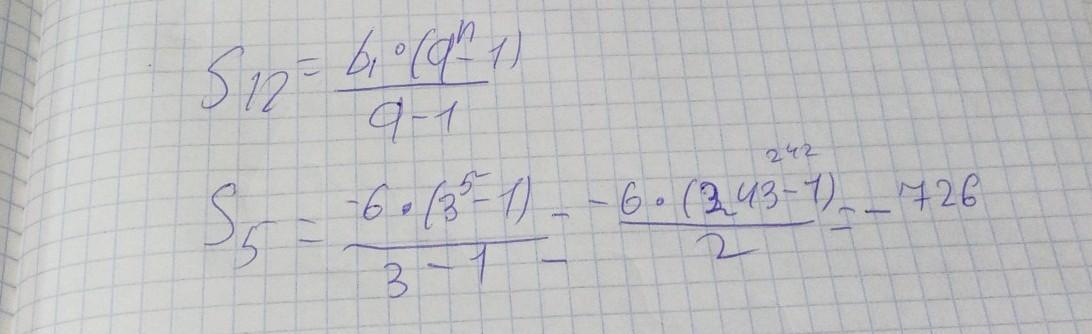 S₁₂ = b₁ · (qⁿ - 1) / q - 1
242
S₅ = -6 · (3⁵ - 1) / 3 - 1 = -6 · (243 - 1) / 2 = - 726